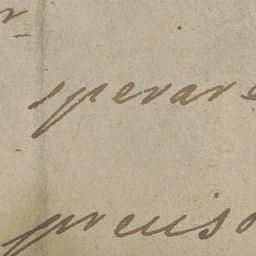 sperare
preciso